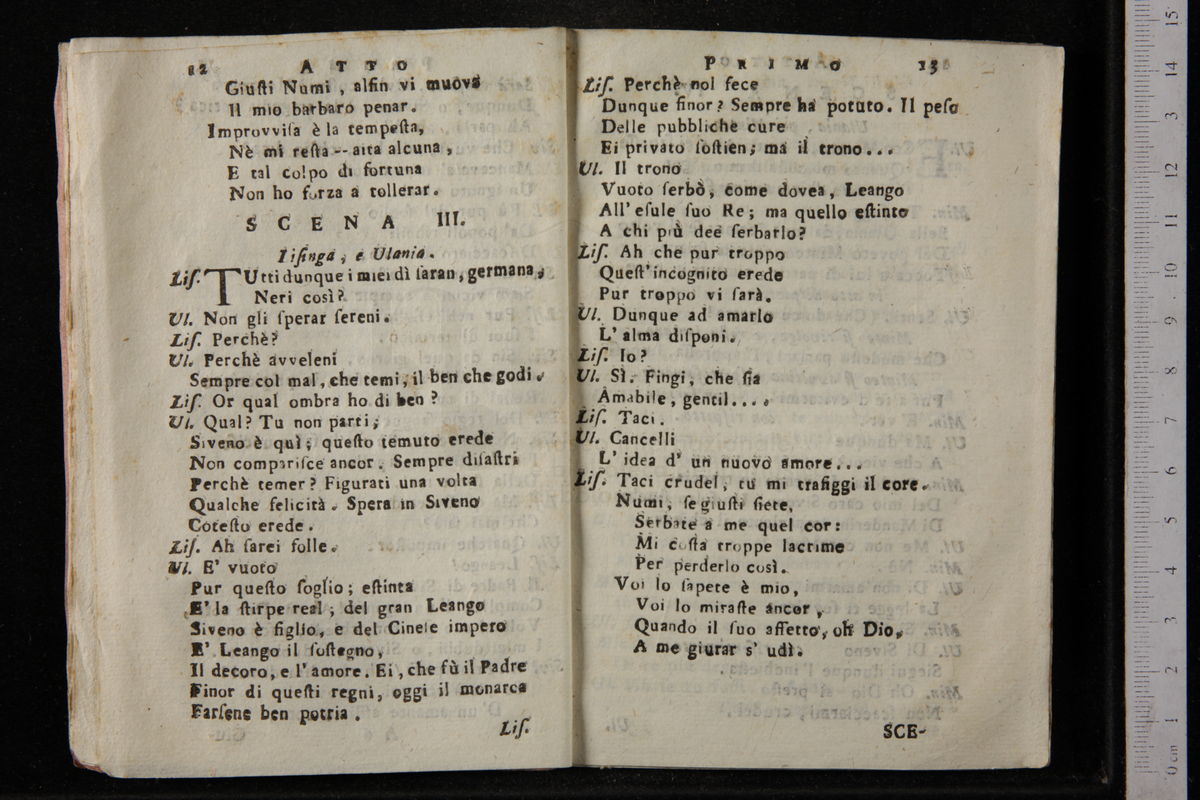 12 ATTO
Giuſti Numi, alfin vi muova
Il mio barbaro penar.
Improvviſa è la tempeſta,
Nè mi reſta -- aita alcuna,
E tal colpo di fortuna
Non ho forza a tollerar.
SCENA III.
Liſinga, e Ulania.
Liſ. TUtti dunque i miei dì ſaran, germana,
Neri così?
Ul. Non gli ſperar ſereni.
Liſ. Perchè?
Ul. Perchè avveleni
Sempre col mal, che temi, il ben che godi.
Liſ. Or qual ombra ho di ben?
Ul. Qual? Tu non parti;
Siveno è quì; queſto temuto erede
Non compariſce ancor. Sempre diſaſtri
Perchè temer? Figurati una volta
Qualche felicità. Spera in Siveno
Coteſto erede.
Liſ. Ah ſarei folle.
Ul. E' vuoto
Pur queſto ſoglio; eſtinta
E' la ſtirpe real; del gran Leango
Siveno è figlio, e del Cineſe impero
E' Leango il ſoſtegno,
Il decoro, e l'amore. Ei, che fù il Padre
Finor di queſti regni, oggi il monarca
Farſene ben potria.
Liſ.
PRIMO 13
Liſ. Perchè nol fece
Dunque ſinor? Sempre ha potuto. Il peſo
Delle pubbliche cure
Ei privato ſoſtien; ma il trono...
Ul. Il trono
Vuoto ſerbò, come dovea, Leango
All'eſule ſuo Re; ma quello eſtinto
A chi più dee ſerbarlo?
Liſ. Ah che pur troppo
Queſt'incognito erede
Pur troppo vi ſarà.
Ul. Dunque ad amarlo
L'alma diſponi.
Liſ. Io?
Ul. Sì. Fingi, che ſia
Amabile, gentil....
Liſ. Taci.
Ul. Cancelli
L'idea d'un nuovo amore...
Liſ. Taci crudel, tu mi trafiggi il core.
Numi, ſe giuſti ſiete,
Serbate a me quel cor:
Mi coſta troppe lacrime
Per perderlo così.
Voi lo ſapete è mio,
Voi lo miraſte ancor,
Quando il ſuo affetto, oh Dio,
A me giurar s'udì.
SCE-
15
14
13
12
11
10
9
8
7
6
5
4
3
2
1
0 cm